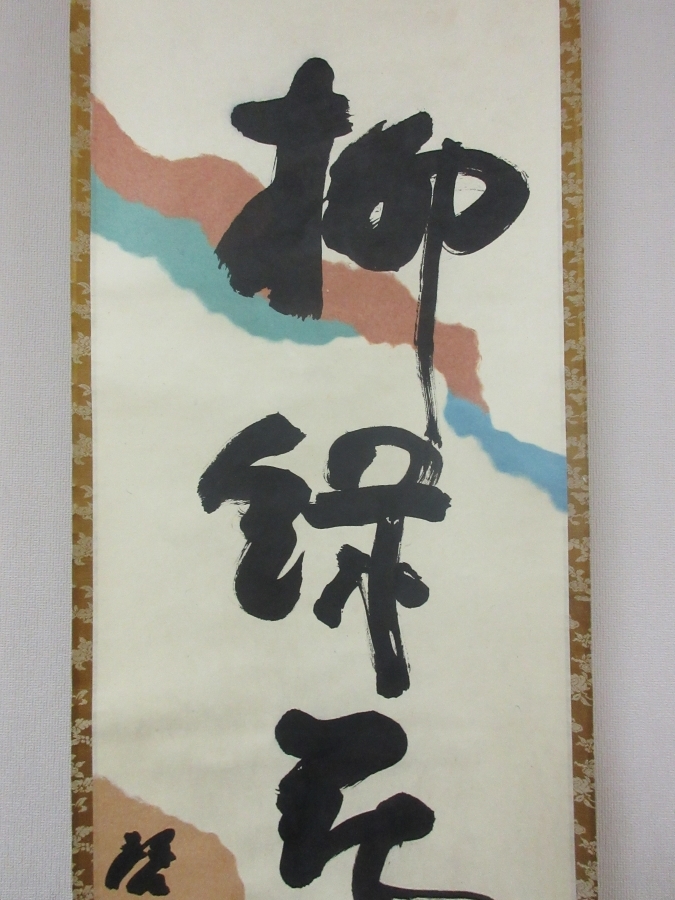 柳緑花